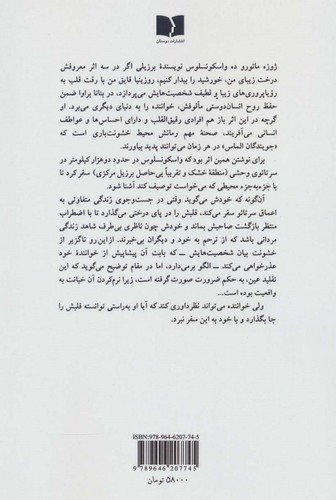 انتشارات دوستان
ژوزه مائورو ده واسکونسلوس نویسندهٔ برزیلی اگر در سه اثر معروفش
درخت زیبای من، خورشید را بیدار کنیم، روزینیا قایق من با رقت قلب به
رؤیاپروری‌های زیبا و لطیف شخصیت‌هایش می‌پردازد، در بنانا براوا ضمن
حفظ روح انسان‌دوستی مألوفش، خواننده را به دنیای دیگری می‌برد.
گرچه در این اثر باز هم افرادی رقیق‌القلب و دارای احساس‌ها و عواطف
انسانی می‌آفریند، صحنهٔ مهم رمانش محیط خشونت‌باری است که
«جویندگان الماس» در هر زمان می‌توانند پدید بیاورند.
برای نوشتن همین اثر بود که واسکونسلوس در حدود دوهزار کیلومتر در
سرتائوی وحشی (منطقهٔ خشک و تقریباً بی‌حاصل برزیل مرکزی) سفر کرد تا
با جزءبه‌جزء محیطی که می‌خواست توصیف کند آشنا شود.
آن‌گونه که خودش می‌گوید وقتی در جست‌وجوی زندگی متفاوتی به
اعماق سرتائو سفر می‌کند، قلبش را در پای درختی می‌گذارد تا با اضطراب
منتظر بازگشت صاحبش بماند و خودش چون ناظری بی‌طرف شاهد زندگی
مردانی باشد که از ترحم به خود و دیگران بی‌خبرند. از این‌رو ناگزیر از
خشونت بیان شخصیت‌هایش ــ که بابت آن پیشاپیش از خوانندهٔ خود
عذرخواهی می‌کند ــ الگو برمی‌دارد، اما در مقام توضیح می‌گوید که این
تقلید عین، به حکم ضرورت صورت گرفته است، زیرا نرم‌کردن آن خیانت به
واقعیت بوده است...
ولی خواننده می‌تواند نظرداوری کند که آیا او به‌راستی توانسته قلبش را
جا بگذارد و با خود به این سفر نبرد.
ISBN: 978-964-6207-74-5
9 789646 207745
۵۸۰۰۰ تومان